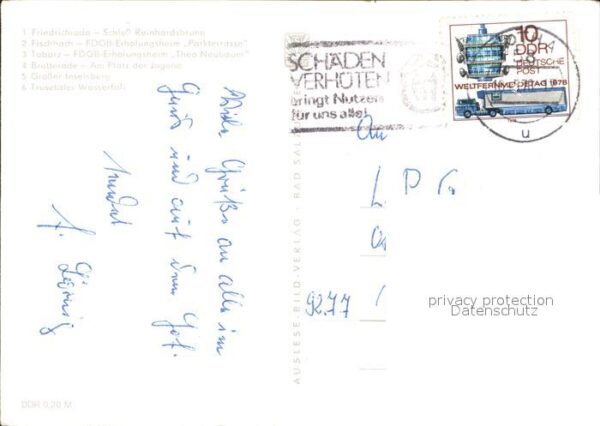 1 Friedrichroda – Schloß Reinhardsbrunn
2 Fischbach – FDGB-Erholungsheim „Parkterrasse"
3 Tabarz – FDGB-Erholungsheim „Theo Neubauer"
4 Brotterode – Am Platz der Jugend
5 Großer Inselsberg
6 Trusetaler Wasserfall
Viele Grüße an alle im
Haus und auf dem Hof.
sendet
AUSLESE-BILD-VERLAG · BAD SALZUNGEN
SCHÄDEN
VERHÜTEN
bringt Nutzen
für uns alle!
10
DDR
DEUTSCHE
POST
WELTFERNMELDETAG 1978
u
An
9277
privacy protection
Datenschutz
DDR 0,20 M